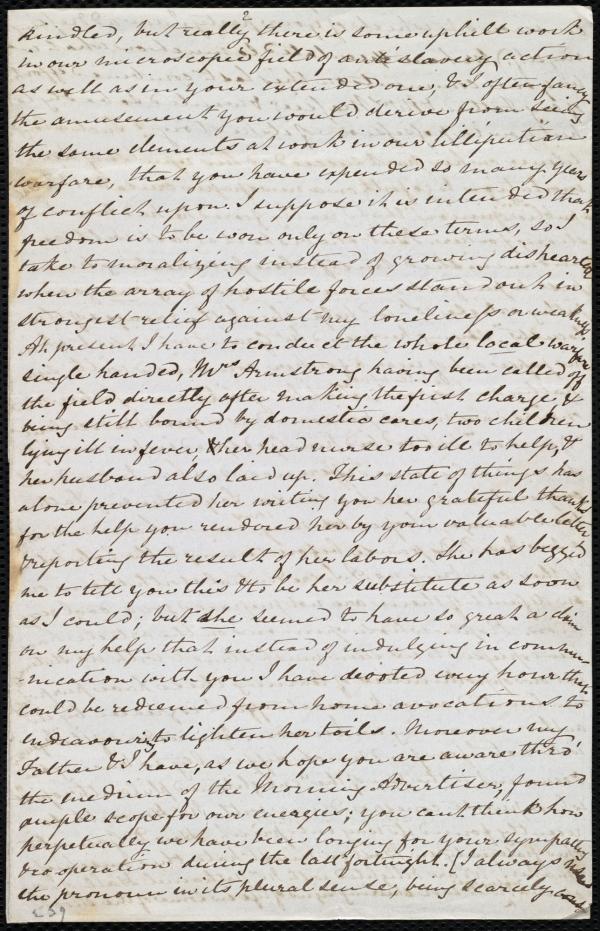 2
kindled, but really there is some uphill work
in our microscopic field of anti slavery action
as well as in your extended one, & I often fancy
the amusement you would derive from seeing
the same elements at work in our lilliputian
warfare, that you have expended so many years
of conflict upon. I suppose it is intended that
freedom is to be won only on these terms, so I
take to moralizing instead of growing disheartened
when the array of hostile forces stand out in
strongest relief against my loneliness or weakness
At present I have to conduct the whole local warfare
single handed, Mrs Armstrong having been called off
the field directly after making the first charge, &
being still bound by domestic cares, two children
lying ill in fever, & her head nurse too ill to help, &
her husband also laid up. This state of things has
alone prevented her writing you her grateful thanks
for the help you rendered her by your valuable letter
& reporting the result of her labors. She has begged
me to tell you this & to be her substitute as soon
as I could; but she seemed to have so great a claim
on my help that instead of indulging in commu-
-nication with you I have devoted every hour that
could be redeemed from home avocations to
endeavouring to lighten her toils. Moreover my
Father & I have, as we hope you are aware thro'
the medium of the Morning Advertiser, found
ample scope for our energies; you can't think how
perpetually we have been longing for your sympathy
& co operation during the last fortnight. [I always
the pronoun in its plural sense, being scarcely
239